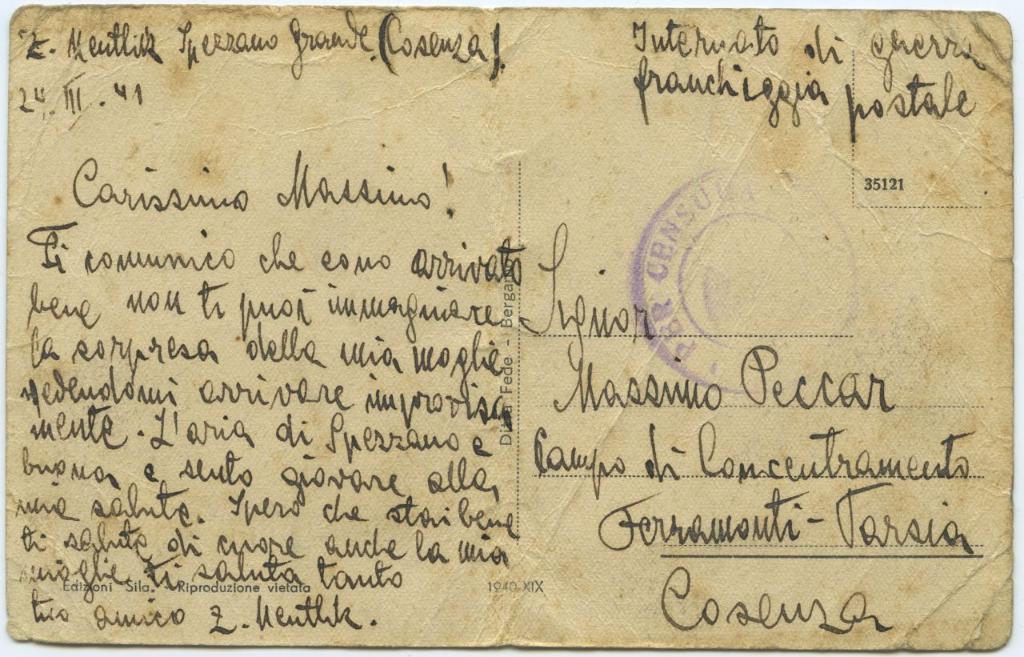 Z. Mentlik Spezzano Grande. (Cosenza).
24. III. 41
Carissimo Massimo!
Ti comunico che sono arrivato
bene non ti puoi immaginare
la sorpresa della mia moglie
vedendomi arrivare improvisa
mente. L'aria di Spezzano e
buona e sento giovare alla
mia salute. Spero che stai bene
ti saluto di cuore anche la mia
moglie ti saluta tanto
tuo amico Z. Mentlik.
Edizioni Sila - Riproduzione vietata
1940-XIX
Fede - Bergam
Internato di gherra
franchiggia postale
35121
PER CENSURA
Signor
Massimo Peccar
Campo di Concentramento
Ferramonti-Tarsia
Cosenza